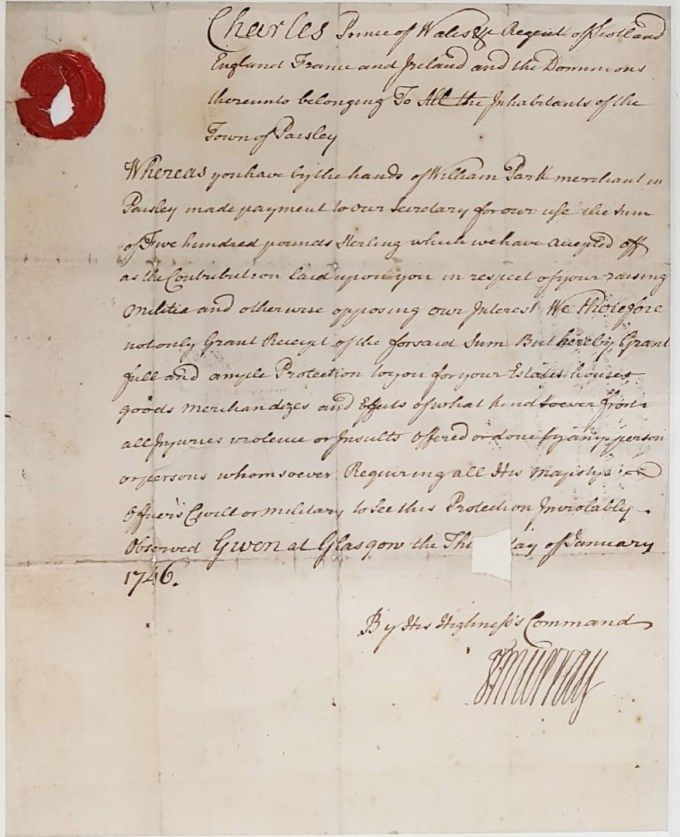 Charles Prince of Wales &c Regent of Scotland
England France and Ireland and the Dominions
thereunto belonging To All the Inhabitants of the
Town of Paisley
Whereas you have by the hands of William Park merchant in
Paisley made payment to our Secretary for our use the Sum
of Five hundred pounds Sterling which we have accepted off
as the Contribution laid upon you in respect of your raising
Militia and otherwise opposing our Interest We therefore
not only Grant Receipt of the forsaid Sum But hereby Grant
full and ample Protection to you for your Estates houses
goods Merchandizes and Effects of what kind soever from
all Injuries violence or Insults offered or done by any person
or persons whomsoever Requiring all His Majesty's
Officers Civill or military to See this Protection Inviolably
Observed Given at Glasgow the day of January
1746.
By His Highness's Command
Murray